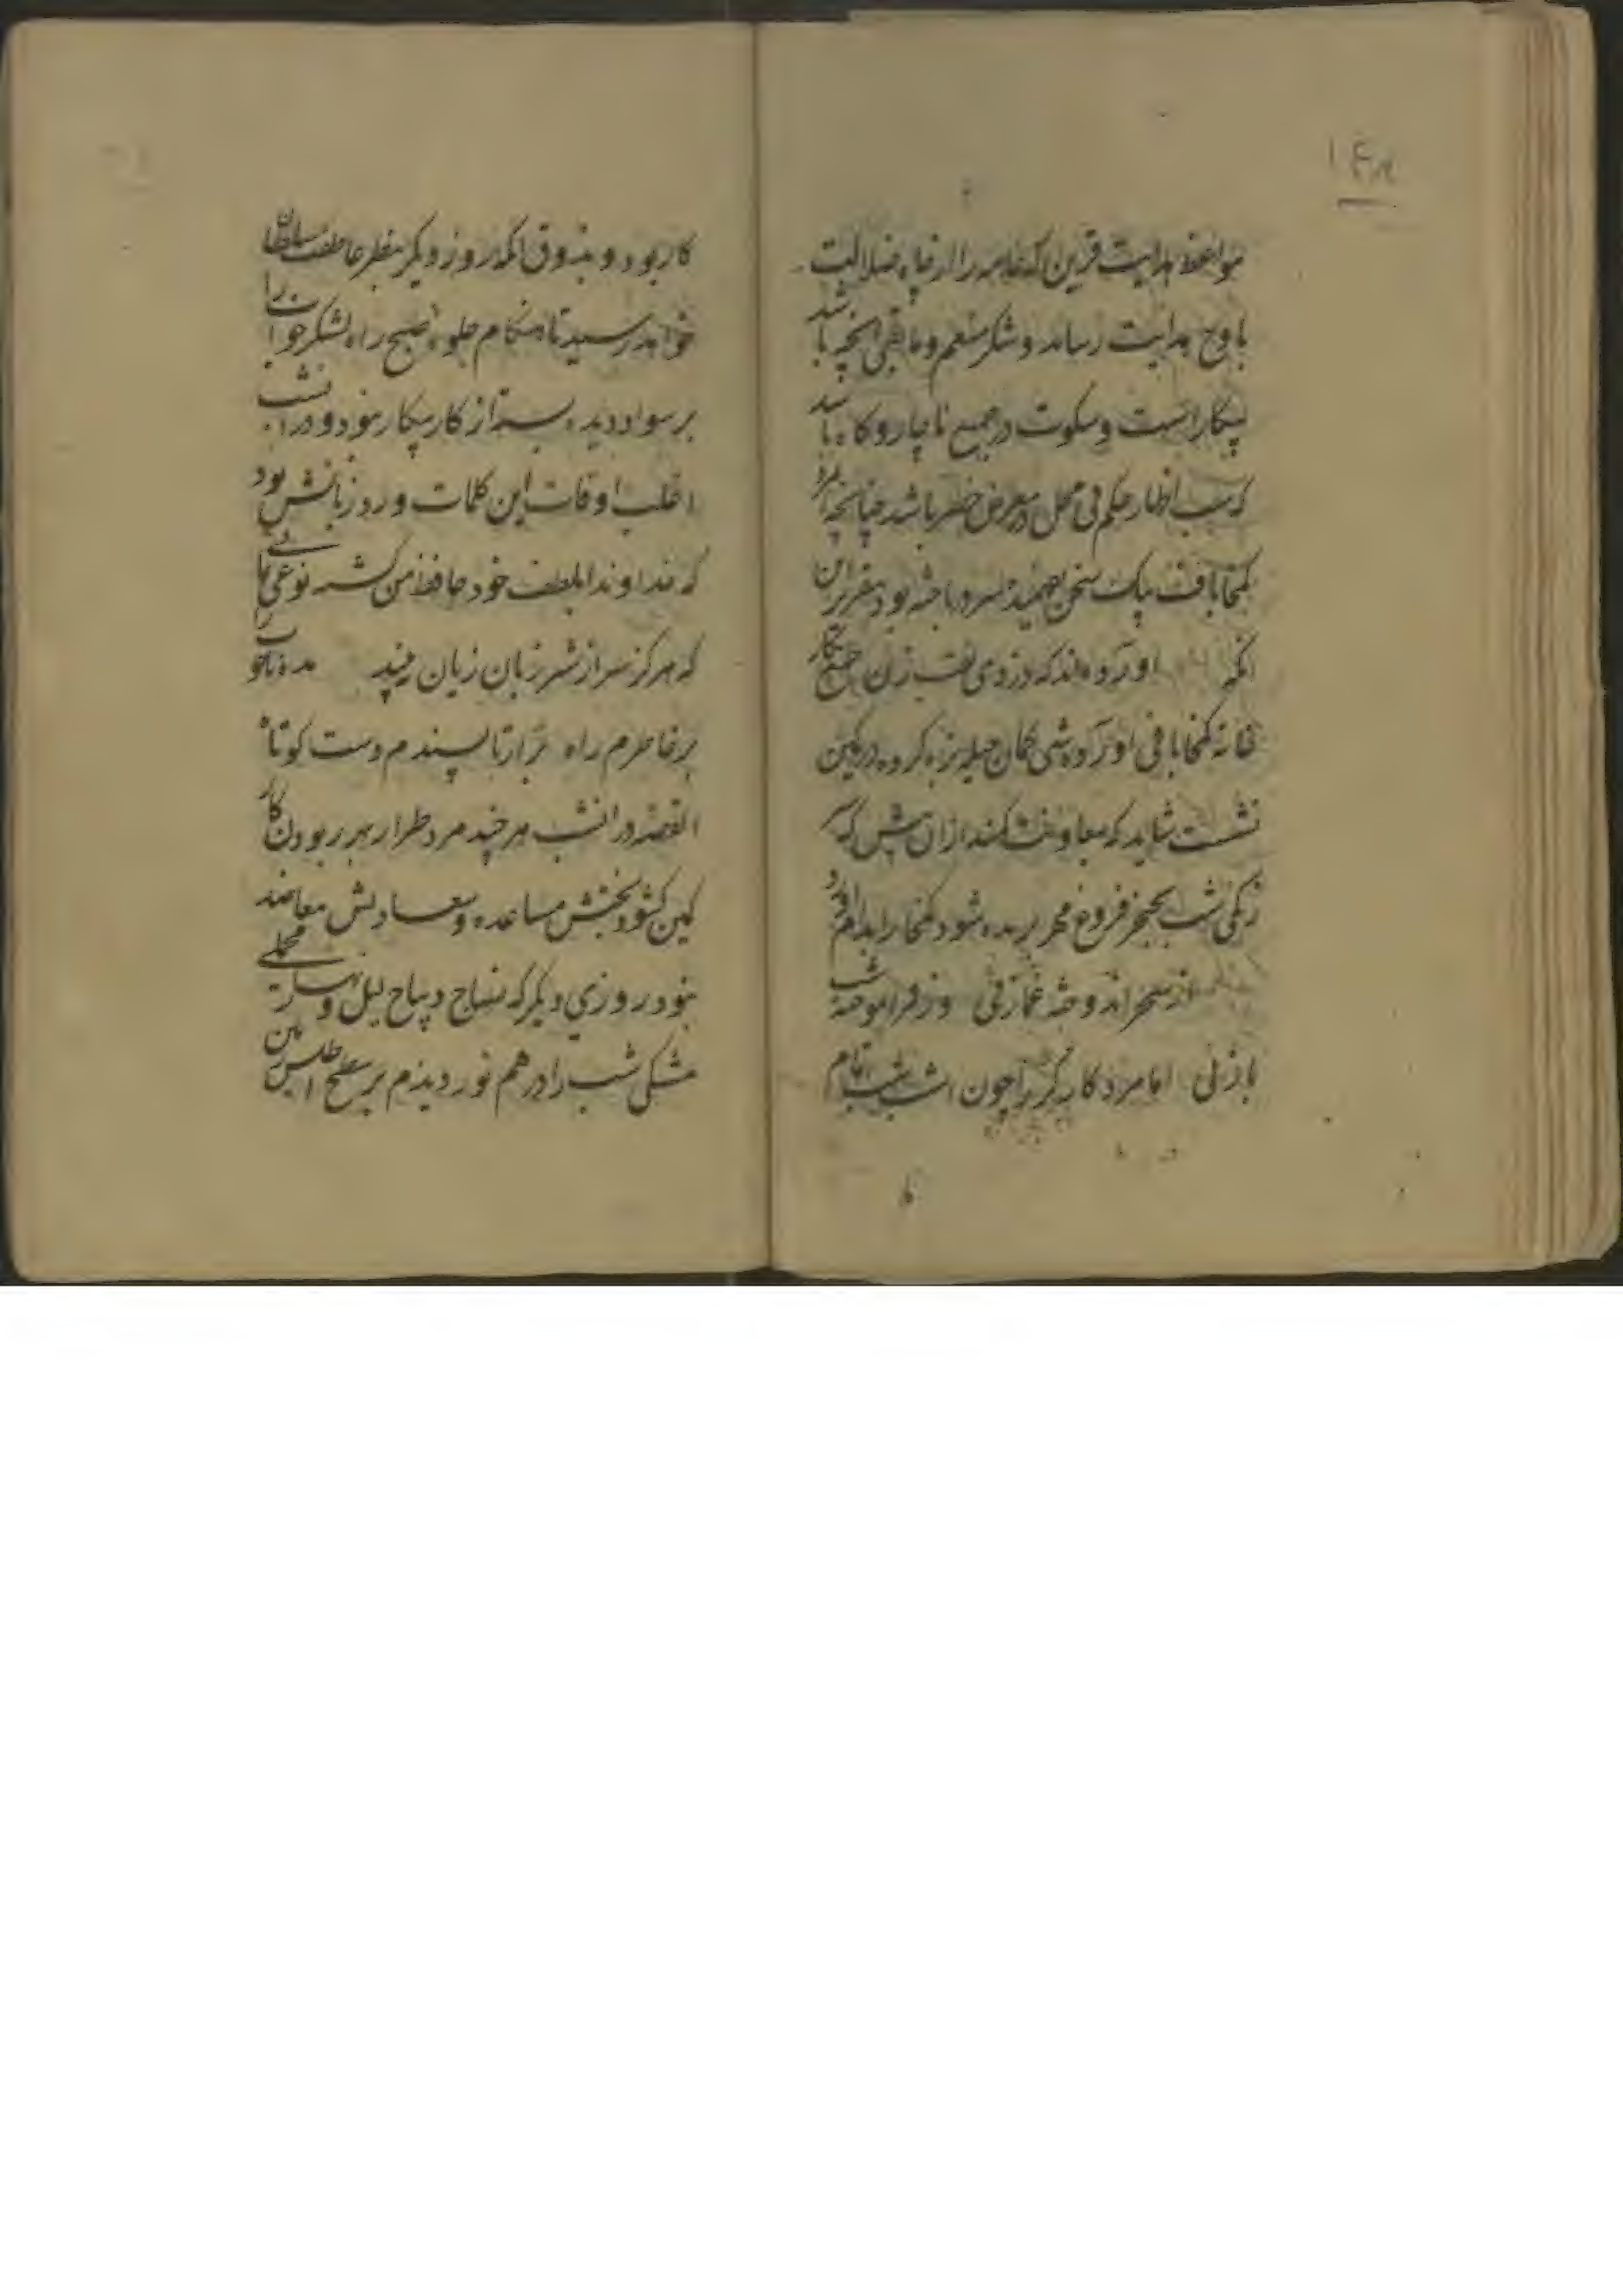 ۱۴۸
مواعظه هدایت قرین که عامه را از چاه ضلالت
باوج هدایت رساند و شکر منعم و مابقی انچه باشد
بیکار است و سکوت در جمیع ناچار و کاه باشد
که سبب اظهار حکم فی محل در معرض خطر باشد چنانچه مرد
کمخا باف بیک سخن سر درباخته بود تقریر این
انکه اورده اند که دزدی نقب زن
خانه کمخا بافی اورده شبی کمان حیله بزه کرده در کمین
نشست شاید که معاونت کند از ان پیش که سر
زنگی شب بخنجر فروغ مهر بریده شود کمخا را بدام اورد
از سحر اندوخته غمازی وز فرا موخته شب
بازی اما مرد کارگر را چون شب اتمام
کا
کار بود و بذوق انکه روز دیگر بنظر عاطفت سلطان
خواهد رسید تا هنکام جلوه صبح راه لشکر خواب را
بر سواد دیده بسته از کار بیکار نبود و در انشب
اغلب اوقات این کلمات ورد زبانش بود
که خداوندا بلطف خود حافظ من نوعی نمای
که هرکز سر از شر زبان زیان نبیند مده ناخوب را
بر خاطرم راه بدار از ناپسندم دست کوتاه
القصه در انشب هر چند مرد طرار بهر ربودن کار
کمین کشود بختش مساعده و سعادتش معاضد
نبود روزی دیکر که نساج دیباج لیل و نهار محملی
مشکی شب را در هم نوردیدم بر سطح اطلس این